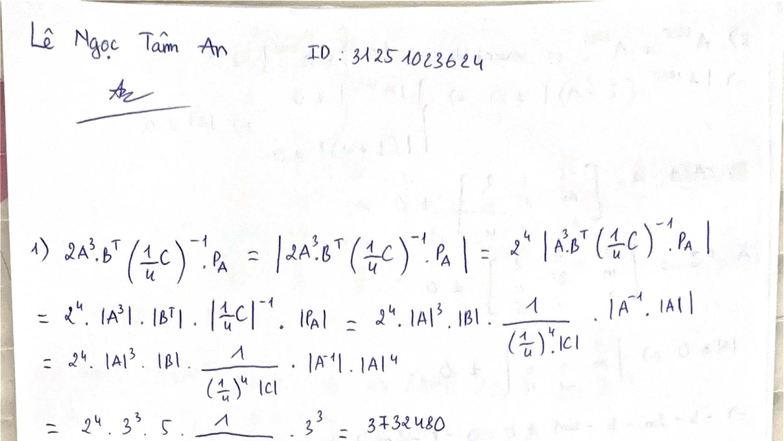 Lê Ngọc Tâm An ID: 31251023624
An
1) 2A³.Bᵀ(1/4 C)⁻¹.P_A = |2A³.Bᵀ(1/4 C)⁻¹.P_A| = 2⁴ |A³.Bᵀ(1/4 C)⁻¹.P_A|
= 2⁴. |A³|. |Bᵀ|. |1/4 C|⁻¹. |P_A| = 2⁴. |A|³. |B|. 1/((1/4)⁴.|C|) . |A⁻¹. |A||
= 2⁴. |A|³. |B|. 1/((1/4)⁴ |C|) . |A⁻¹|. |A|⁴
= 2⁴. 3³. 5. 1/ . 3³ = 3732480